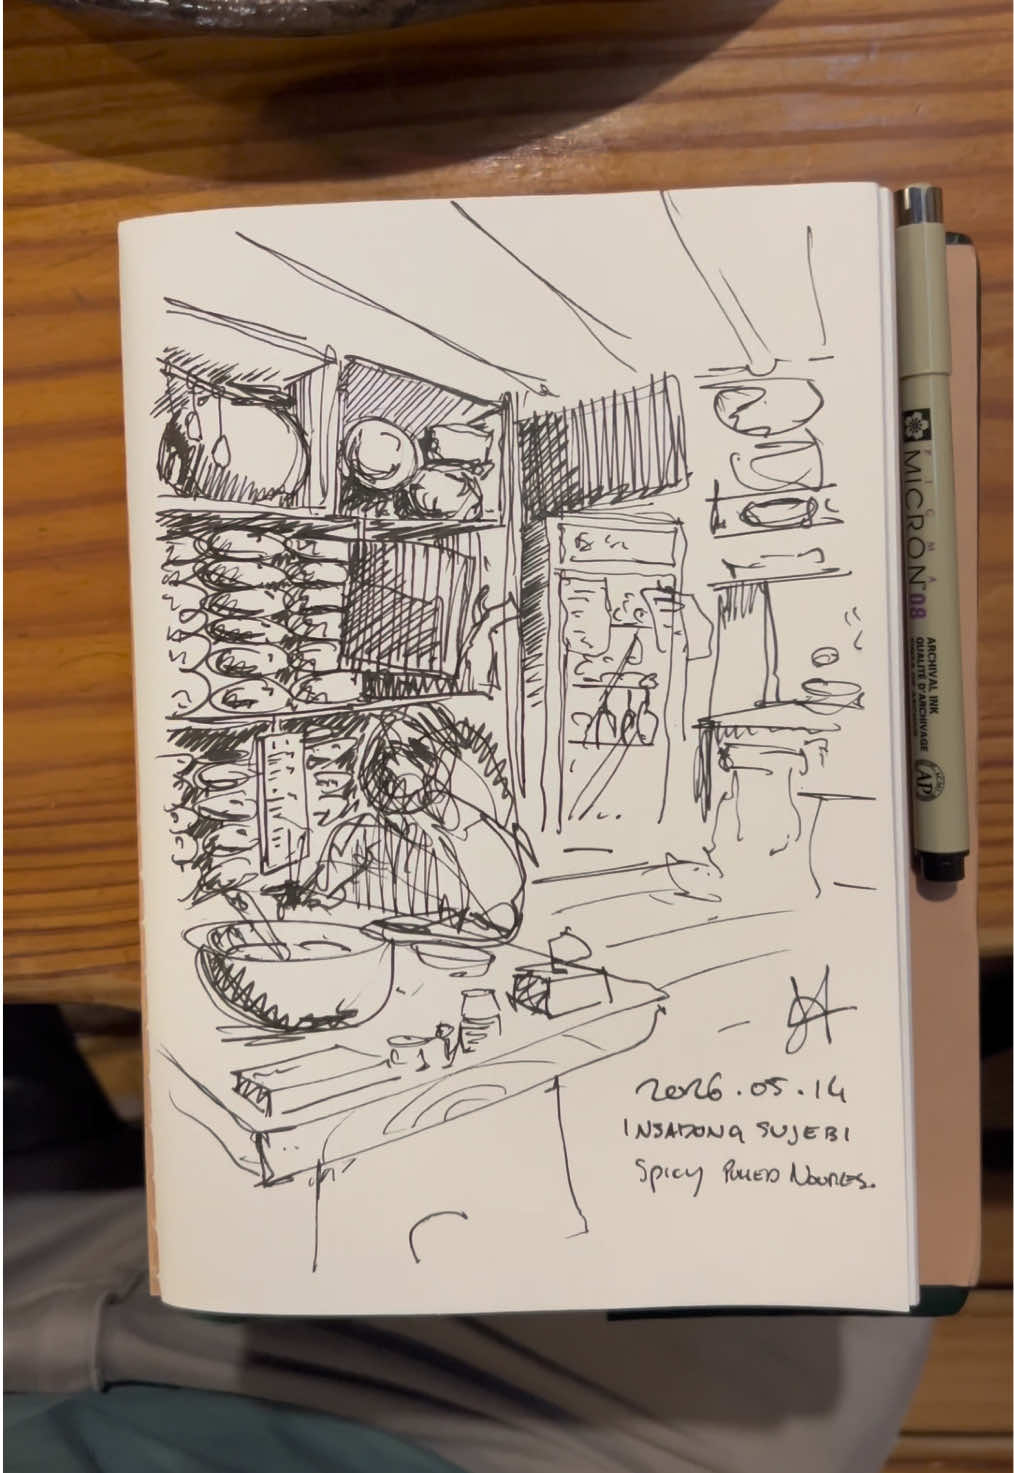 2026.05.14
INSADONG SUJEBI
SPICY PULLED NOODLES.
PIGMA
MICRON 08
ARCHIVAL INK
QUALITÉ D'ARCHIVAGE
AP